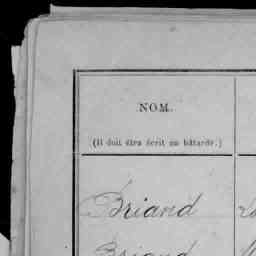 NOM.
(Il doit être écrit en bâtarde.)
Briand
Briand